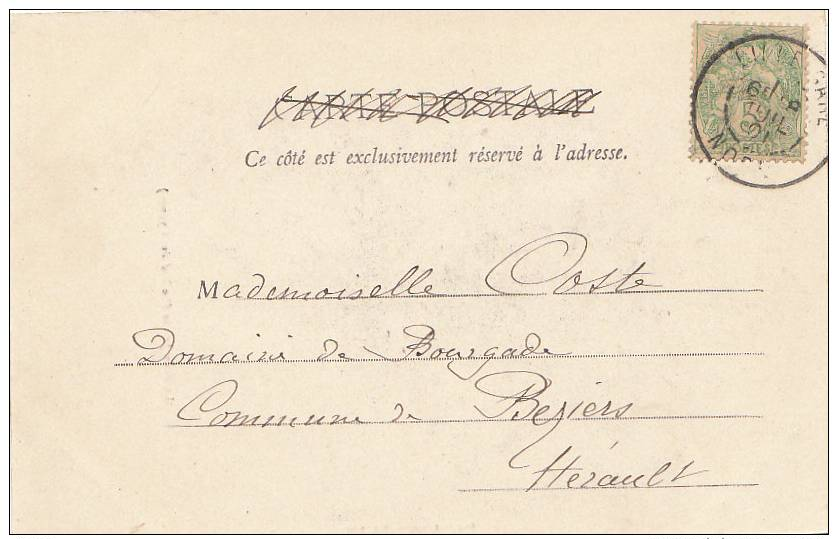 CARTE POSTALE
Ce côté est exclusivement réservé à l'adresse.
Mademoiselle Coste
Domaine de Bourgade
Commune de Beziers
Hérault